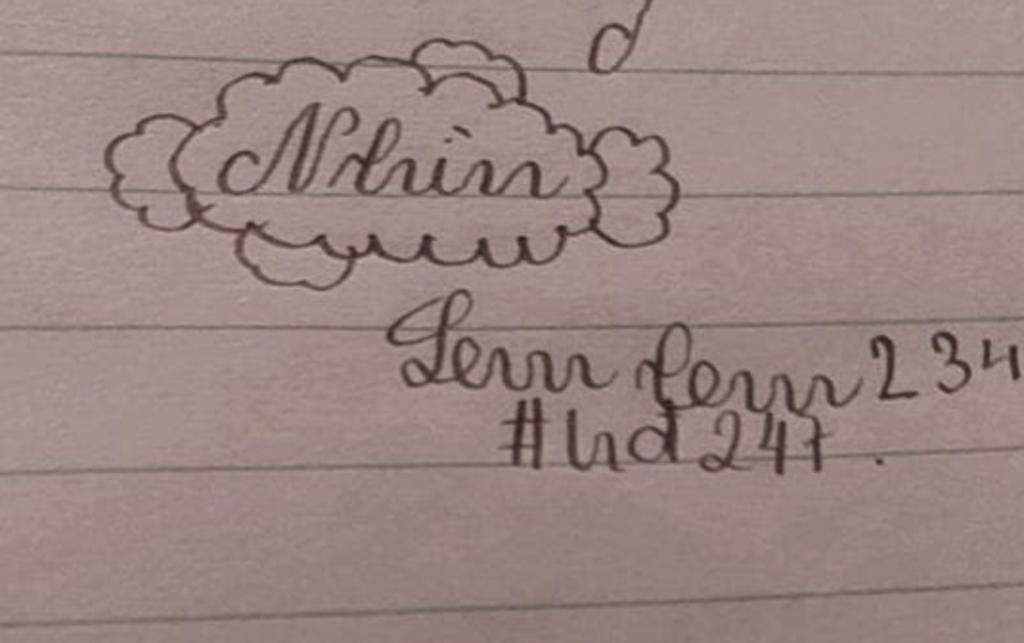 d
Nhím
Lem fem 234
#hd247.